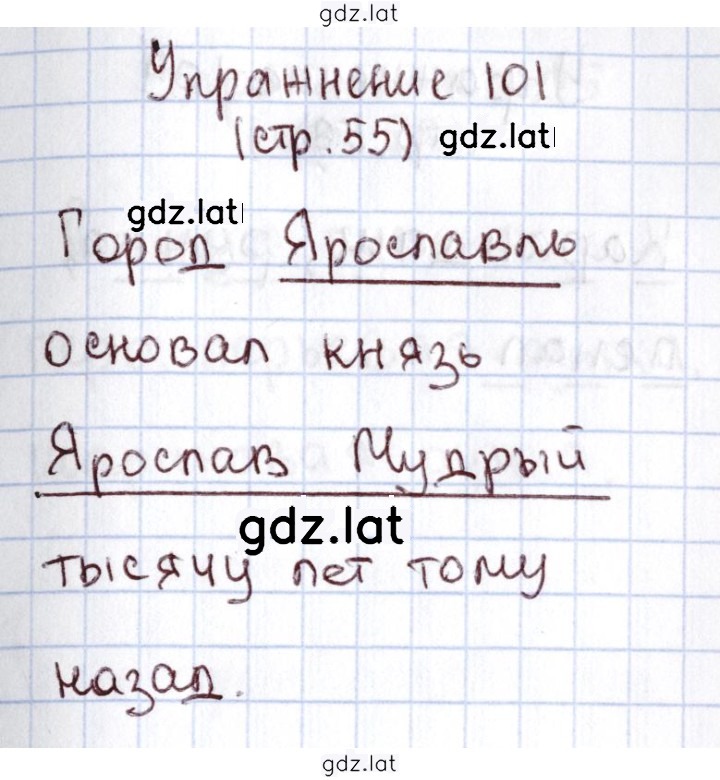 gdz.lat
Упражнение 101
(стр. 55) gdz.lat
gdz.lat
Город Ярославль
основал князь
Ярослав Мудрый
gdz.lat
тысячу лет тому
назад.
gdz.lat